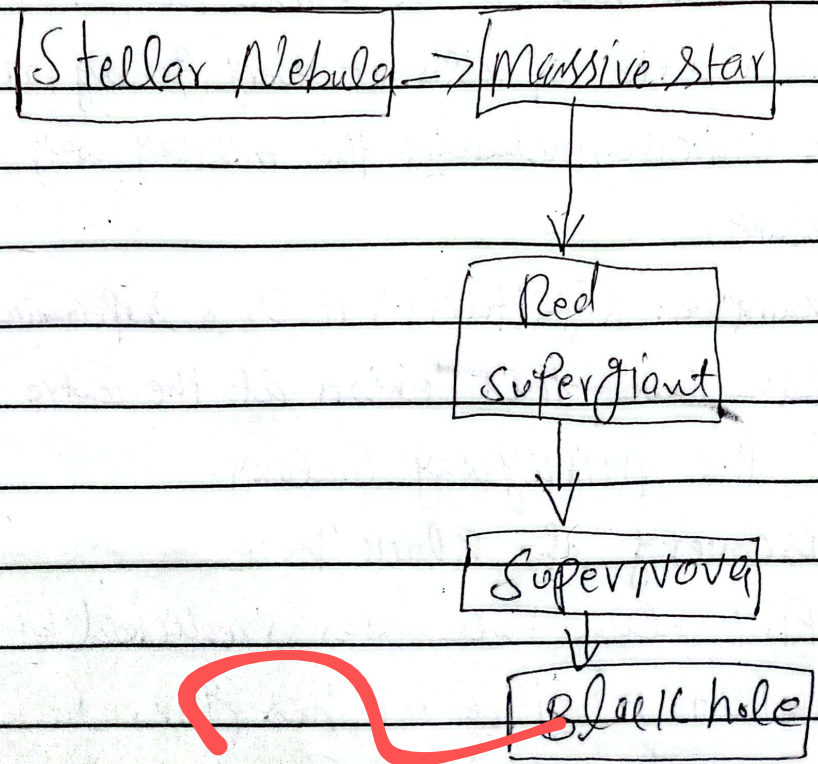 Stellar Nebula -> Massive star
Red
supergiant
SuperNova
Black hole